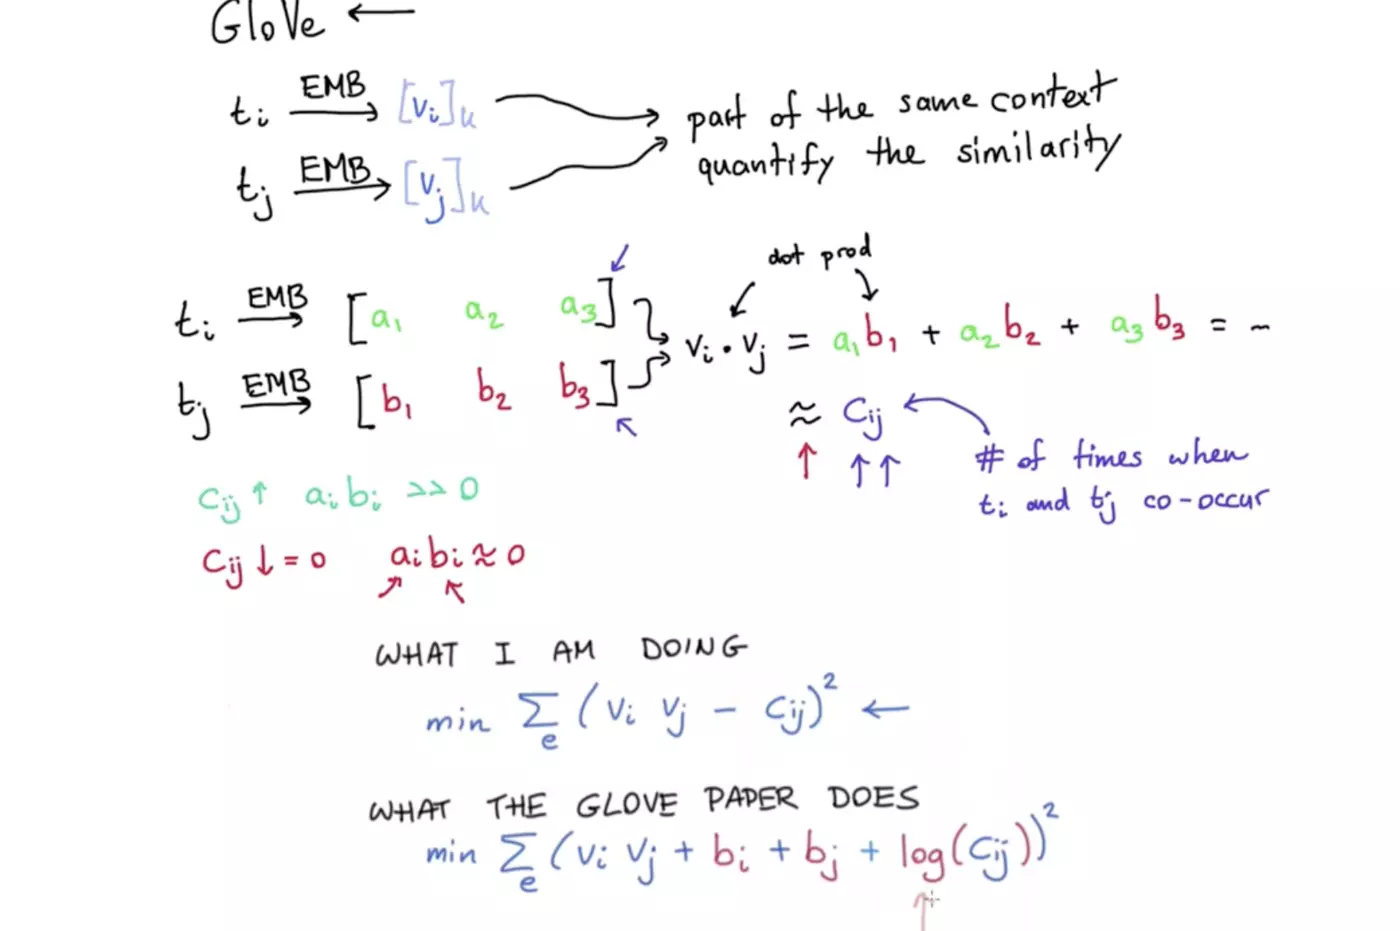 GloVe ←
t_i EMB→ [v_i]_k
t_j EMB→ [v_j]_k
part of the same context
quantify the similarity
dot prod
t_i EMB→ [a_1 a_2 a_3]
t_j EMB→ [b_1 b_2 b_3]
v_i · v_j = a_1 b_1 + a_2 b_2 + a_3 b_3 = ~
≈ C_ij
# of times when
t_i and t_j co-occur
C_ij ↑ a_i b_i >> 0
C_ij ↓ = 0 a_i b_i ≈ 0
WHAT I AM DOING
min Σ_e (v_i v_j - C_ij)² ←
WHAT THE GLOVE PAPER DOES
min Σ_e (v_i v_j + b_i + b_j + log(C_ij))²